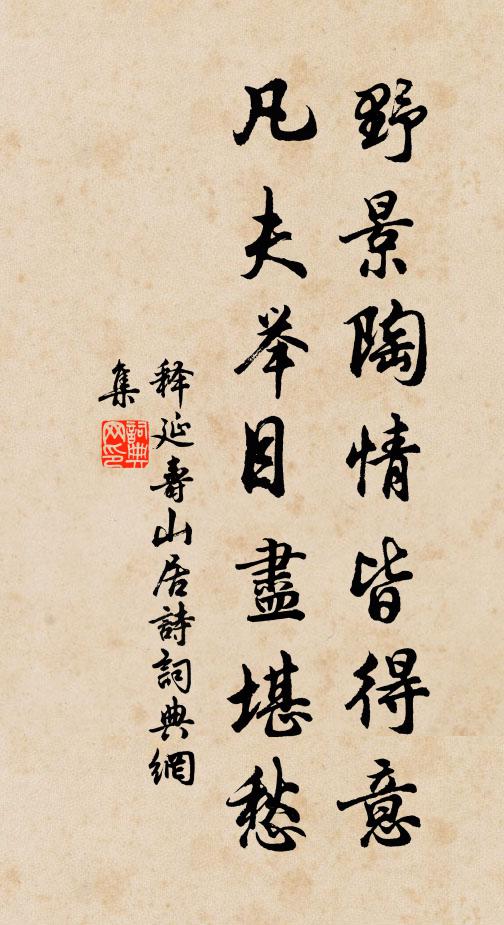 野景陶情皆得意
凡夫举目盡堪愁
释延壽山居詩詞典網
集
詞典
网印